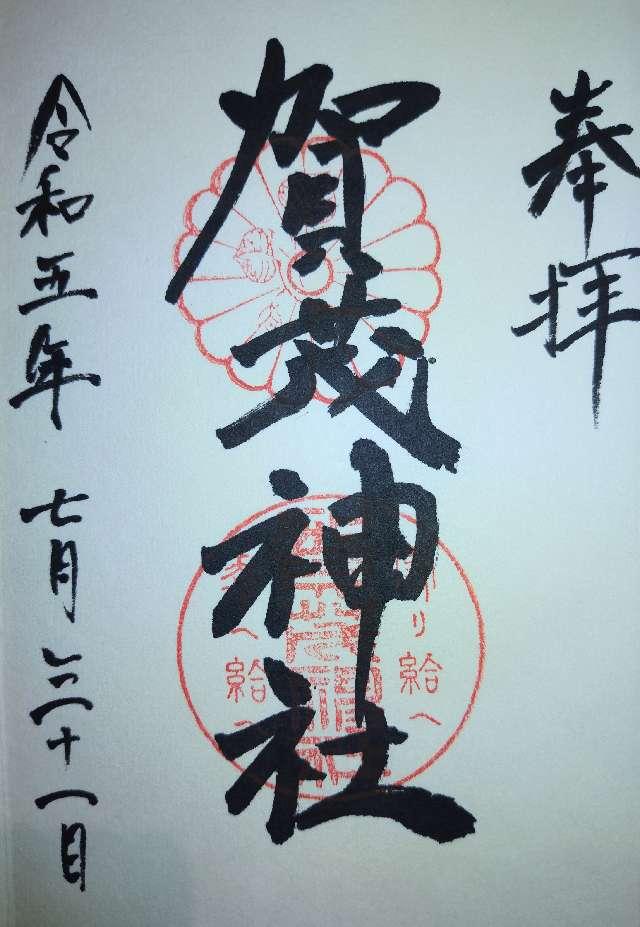 奉拝
賀茂神社
守り給へ
幸へ給へ
賀茂神社
令和五年 七月三十一日